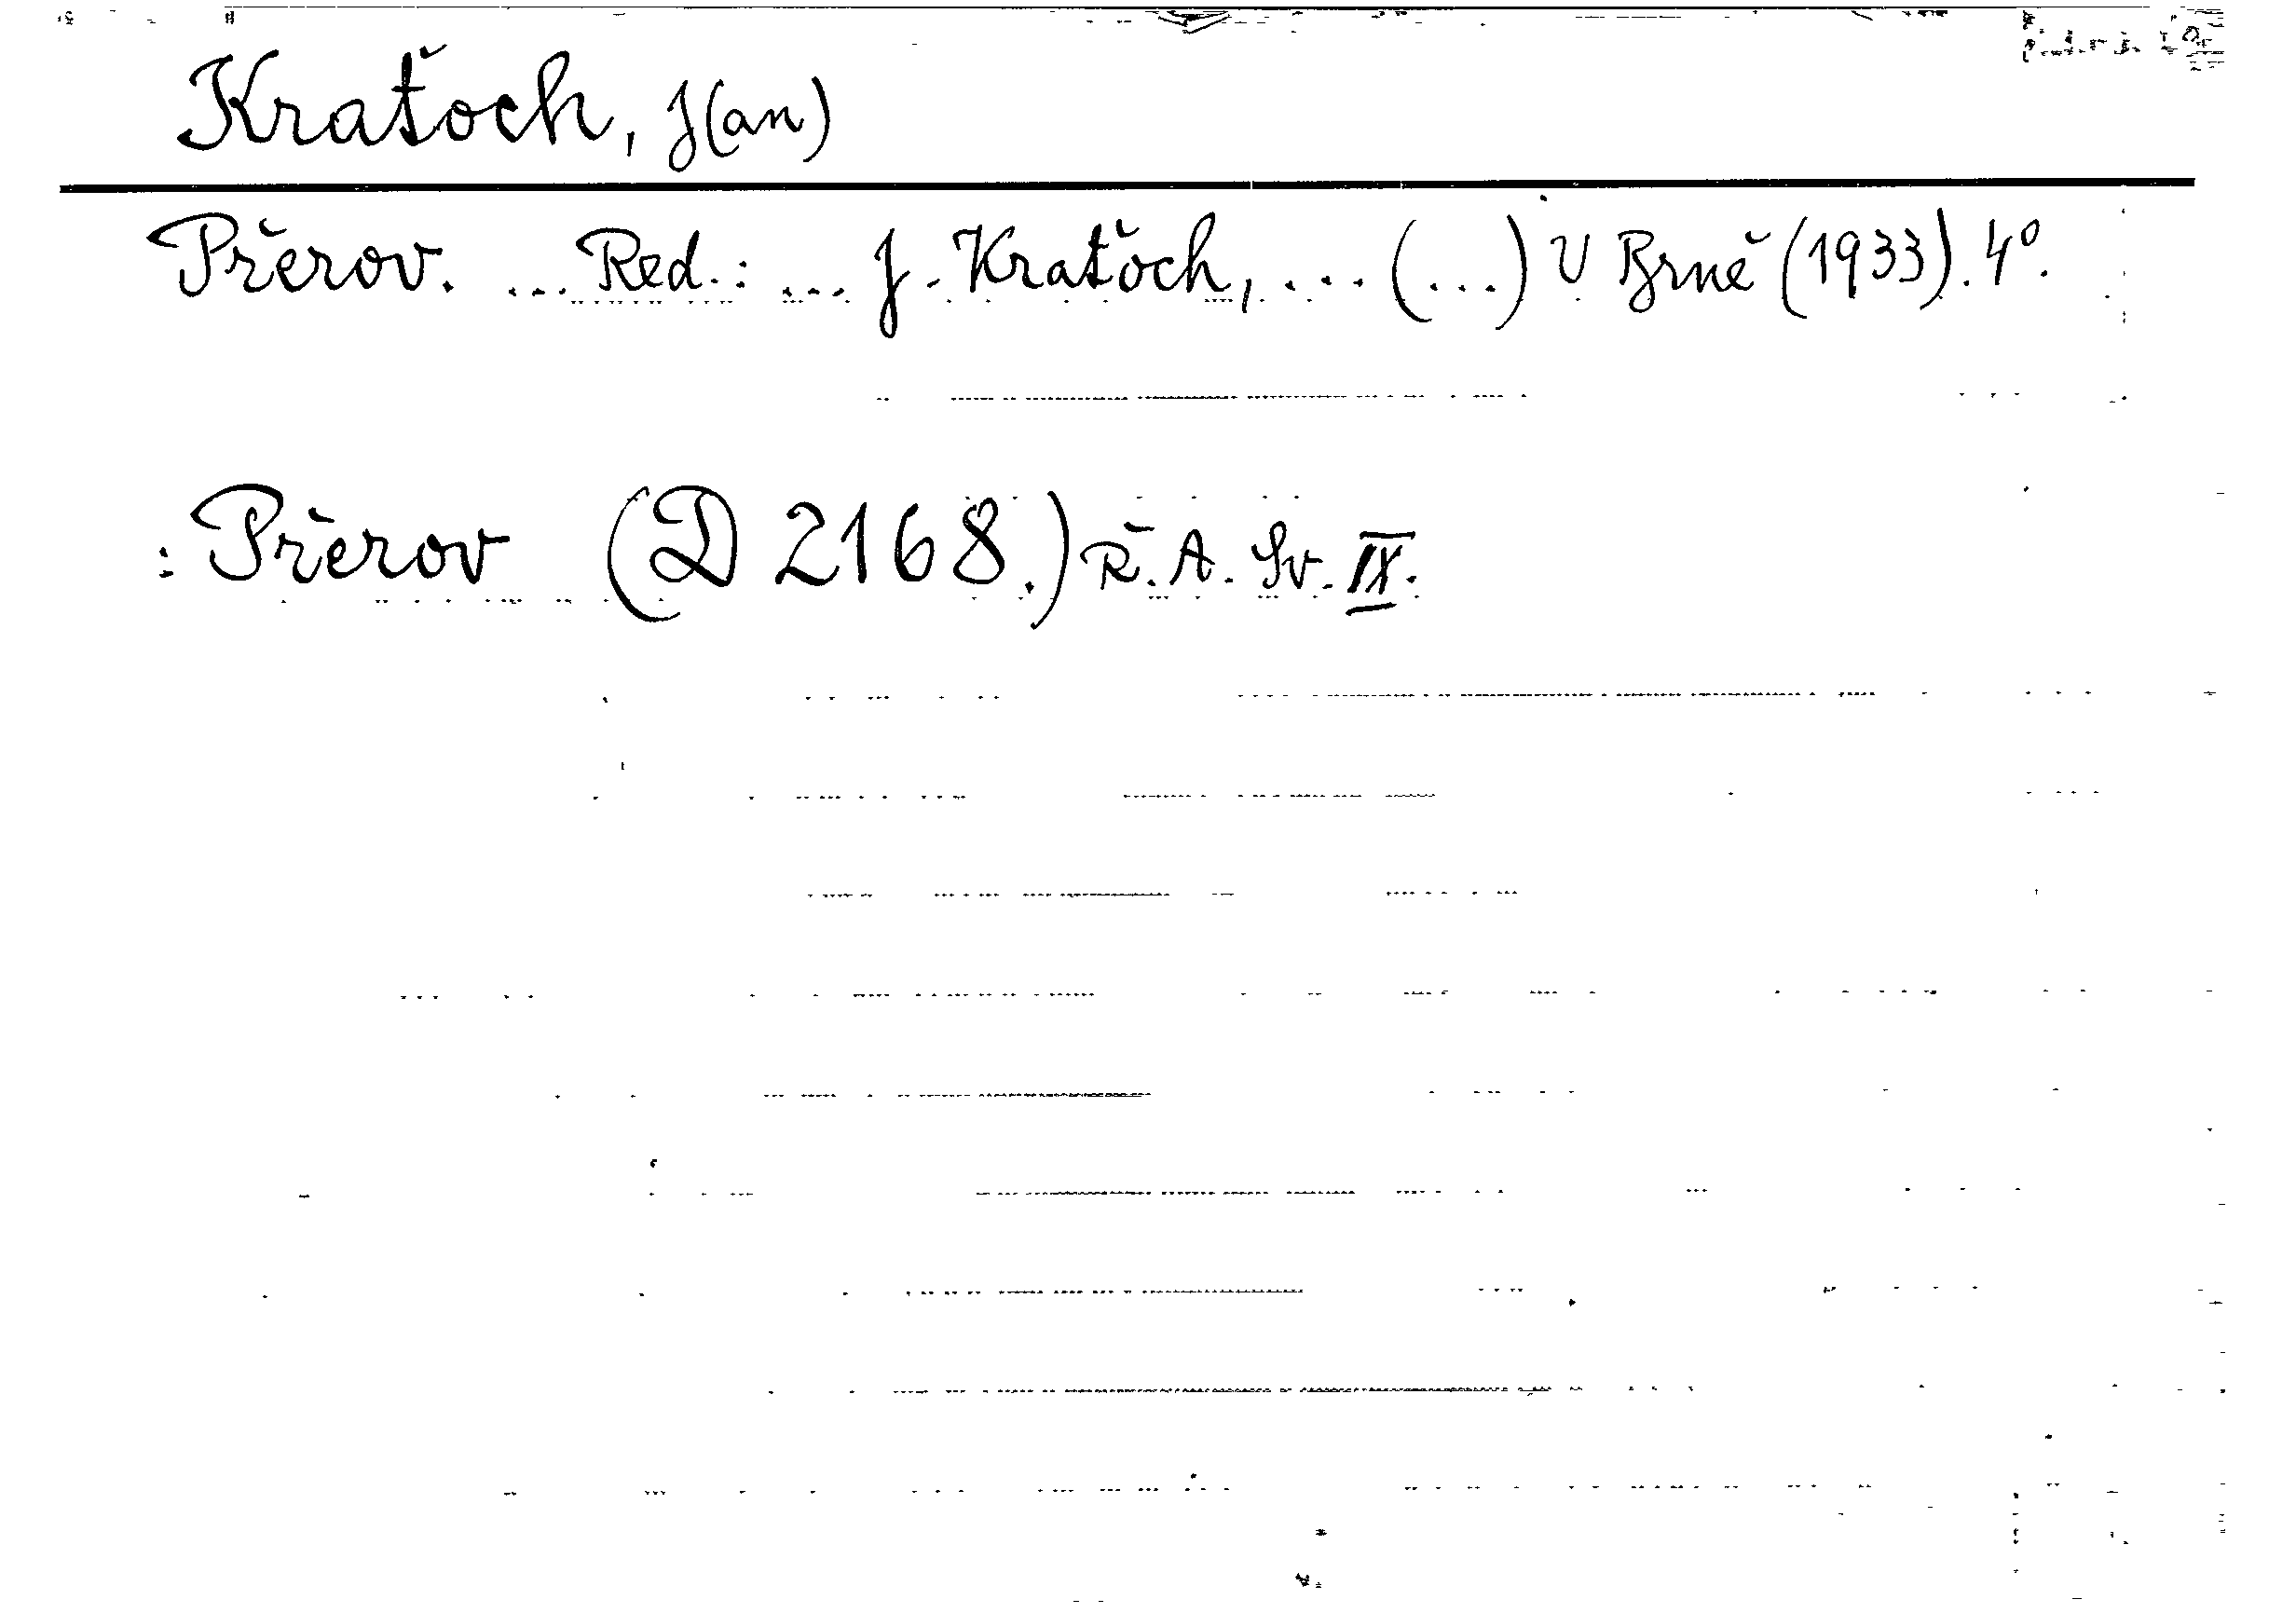 Kraťoch, J(an)
Přerov. ... Red.: ... J. Kraťoch, ... (...) V Brně (1933). 4°.
: Přerov (D 2168.) Ř. A. Sv. IX.